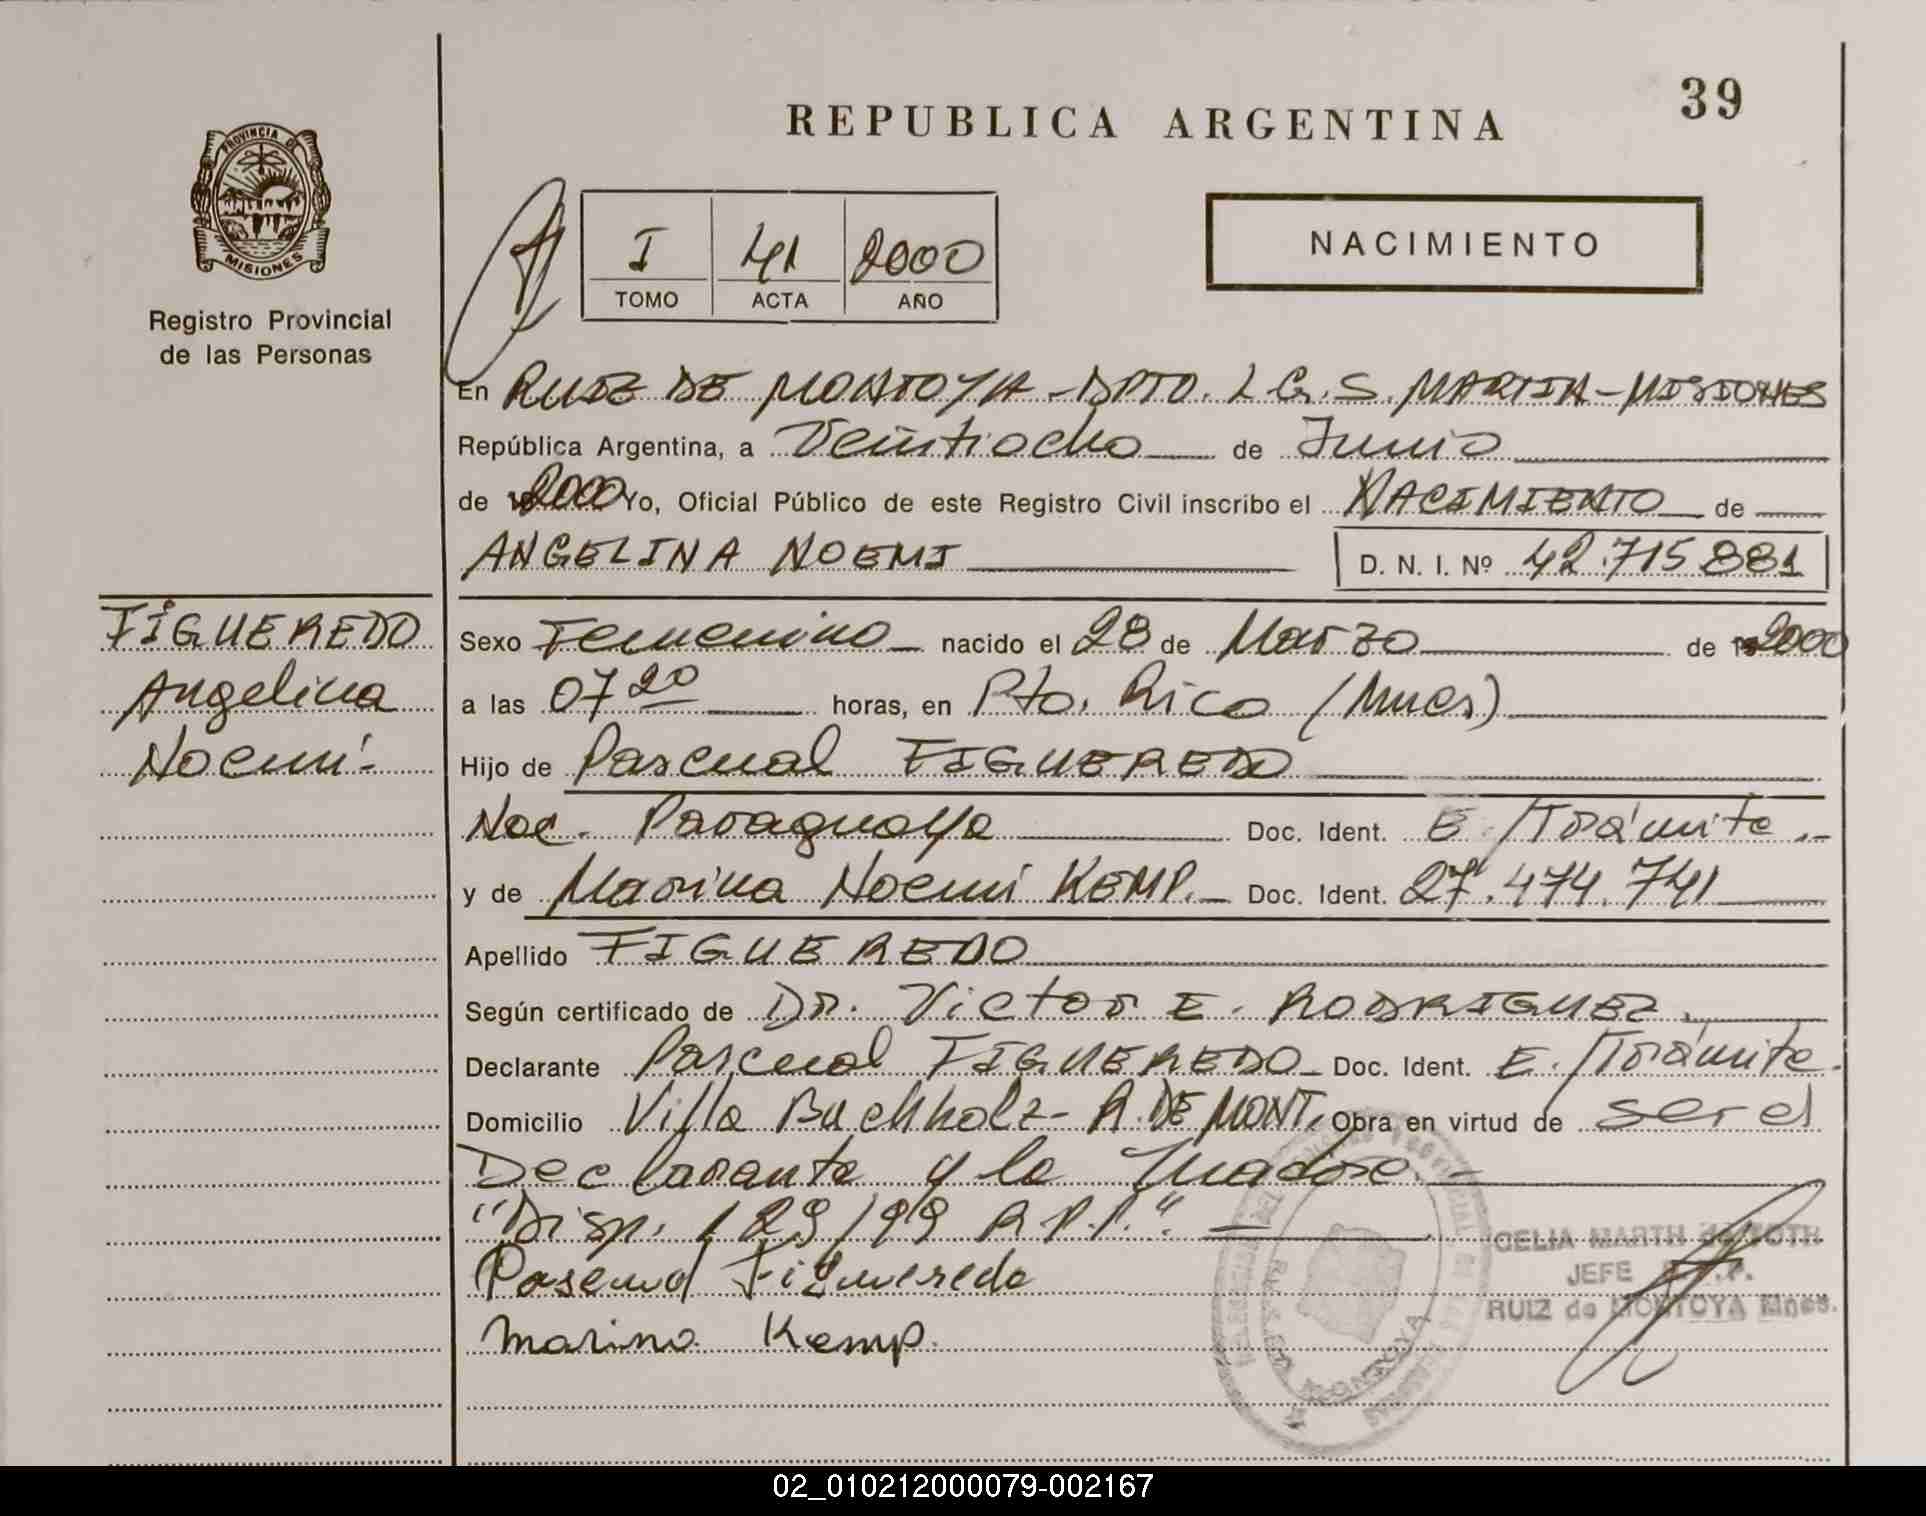 39
REPUBLICA ARGENTINA
PROVINCIA DE
MISIONES
Registro Provincial
de las Personas
I 41 2000
TOMO ACTA AÑO
NACIMIENTO
En RUIZ DE MONTOYA - DPTO. L.G.S. MARTIN - MISIONES
República Argentina, a Veintiocho de Junio
de 2000 Yo, Oficial Público de este Registro Civil inscribo el NACIMIENTO de
ANGELINA NOEMI D. N. I. Nº 42.715.881
FIGUEREDO
Angelina
Noemí.
Sexo Femenino nacido el 28 de Marzo de 2000
a las 07 20 horas, en Pto. Rico (Mnes)
Hijo de Pascual FIGUEREDO
Nac. Paraguaya Doc. Ident. E./Trámite.-
y de Marina Noemí KEMP.- Doc. Ident. 27.474.741
Apellido FIGUEREDO
Según certificado de Dr. Victor E. RODRIGUEZ.
Declarante Pascual FIGUEREDO - Doc. Ident. E./Trámite.
Domicilio Villa Buchholz - R. DE MONT. Obra en virtud de ser el
Declarante y la madre.-
"Disp. 129/99 R.P.P.".-
Pascual Figueredo
Marina Kemp.
CELIA MARTH de TOTH
JEFE
RUIZ de MONTOYA Mnes.
02_010212000079-002167